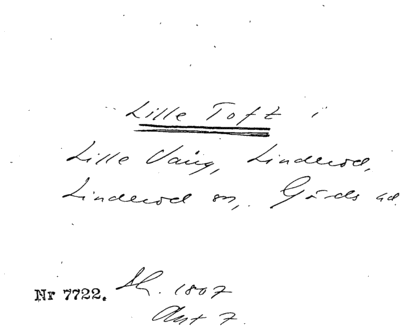 Lille Toft i
Lille Vång, Linderöd,
Linderöd sn, Gärds hd.
Nr 7722. Sk. 1807
Akt 7.